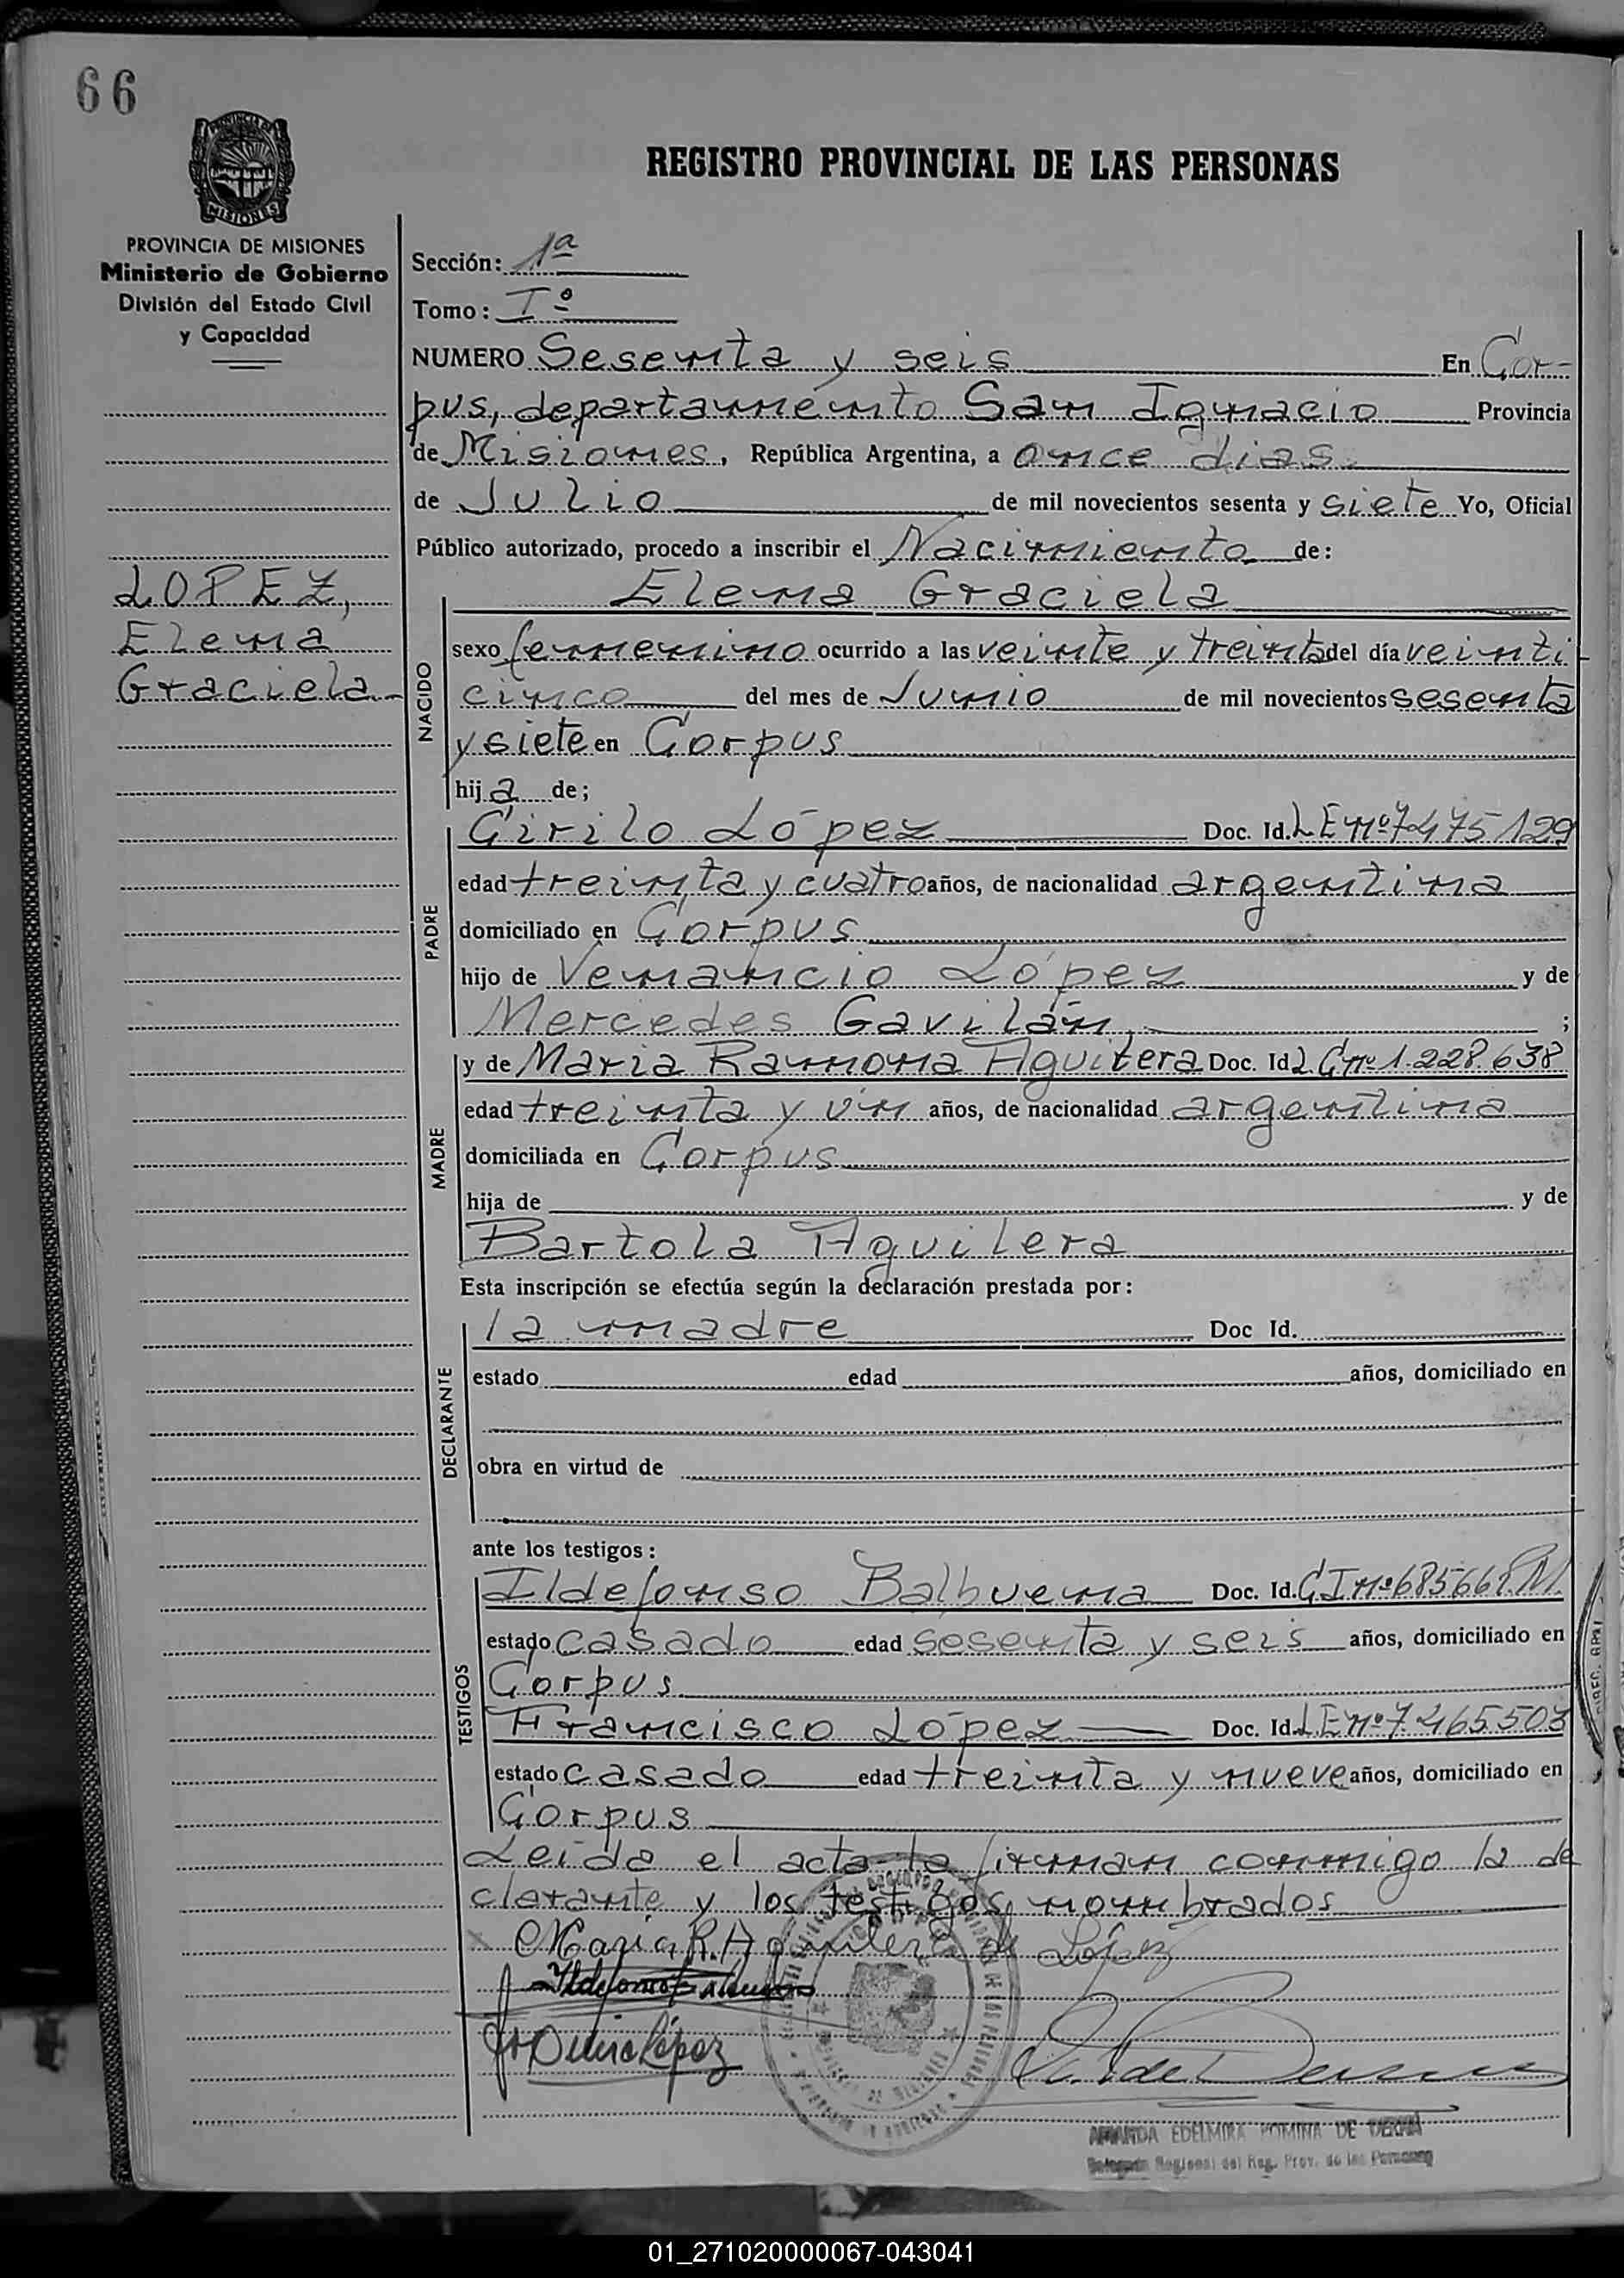 66
PROVINCIA DE MISIONES
Ministerio de Gobierno
División del Estado Civil
y Capacidad
REGISTRO PROVINCIAL DE LAS PERSONAS
Sección: 1ª
Tomo: Iº
NUMERO Sesenta y seis En Cor-
pus, departamento San Ignacio Provincia
de Misiones, República Argentina, a once dias
de Julio de mil novecientos sesenta y siete Yo, Oficial
Público autorizado, procedo a inscribir el Nacimiento de:
LOPEZ,
Elena
Graciela
NACIDO
Elena Graciela
sexo femenino ocurrido a las veinte y treinta del día veinti
cinco del mes de Junio de mil novecientos sesenta
y siete en Corpus
hija de;
PADRE
Cirilo López Doc. Id. LE nº 7475129
edad treinta y cuatro años, de nacionalidad argentina
domiciliado en Corpus
hijo de Venancio López y de
Mercedes Gavilán, ;
MADRE
y de Maria Ramona Aguilera Doc. Id L.C nº 1.228.638
edad treinta y ún años, de nacionalidad argentina
domiciliada en Corpus
hija de y de
Bartola Aguilera
Esta inscripción se efectúa según la declaración prestada por:
DECLARANTE
la madre Doc Id.
estado edad años, domiciliado en
obra en virtud de
ante los testigos:
TESTIGOS
Ildefonso Balbuena Doc. Id. C.I nº
estado casado edad sesenta y seis años, domiciliado en
Corpus
Francisco López Doc. Id. LE nº 7.465.503
estado casado edad treinta y nueve años, domiciliado en
Corpus
Leida el acta la firman conmigo la de
clarante y los testigos nombrados
Maria R. Aguilera de López
López
AMANDA EDELMIRA DE
Regional del Reg. Prov. de las Personas
01_271020000067-043041